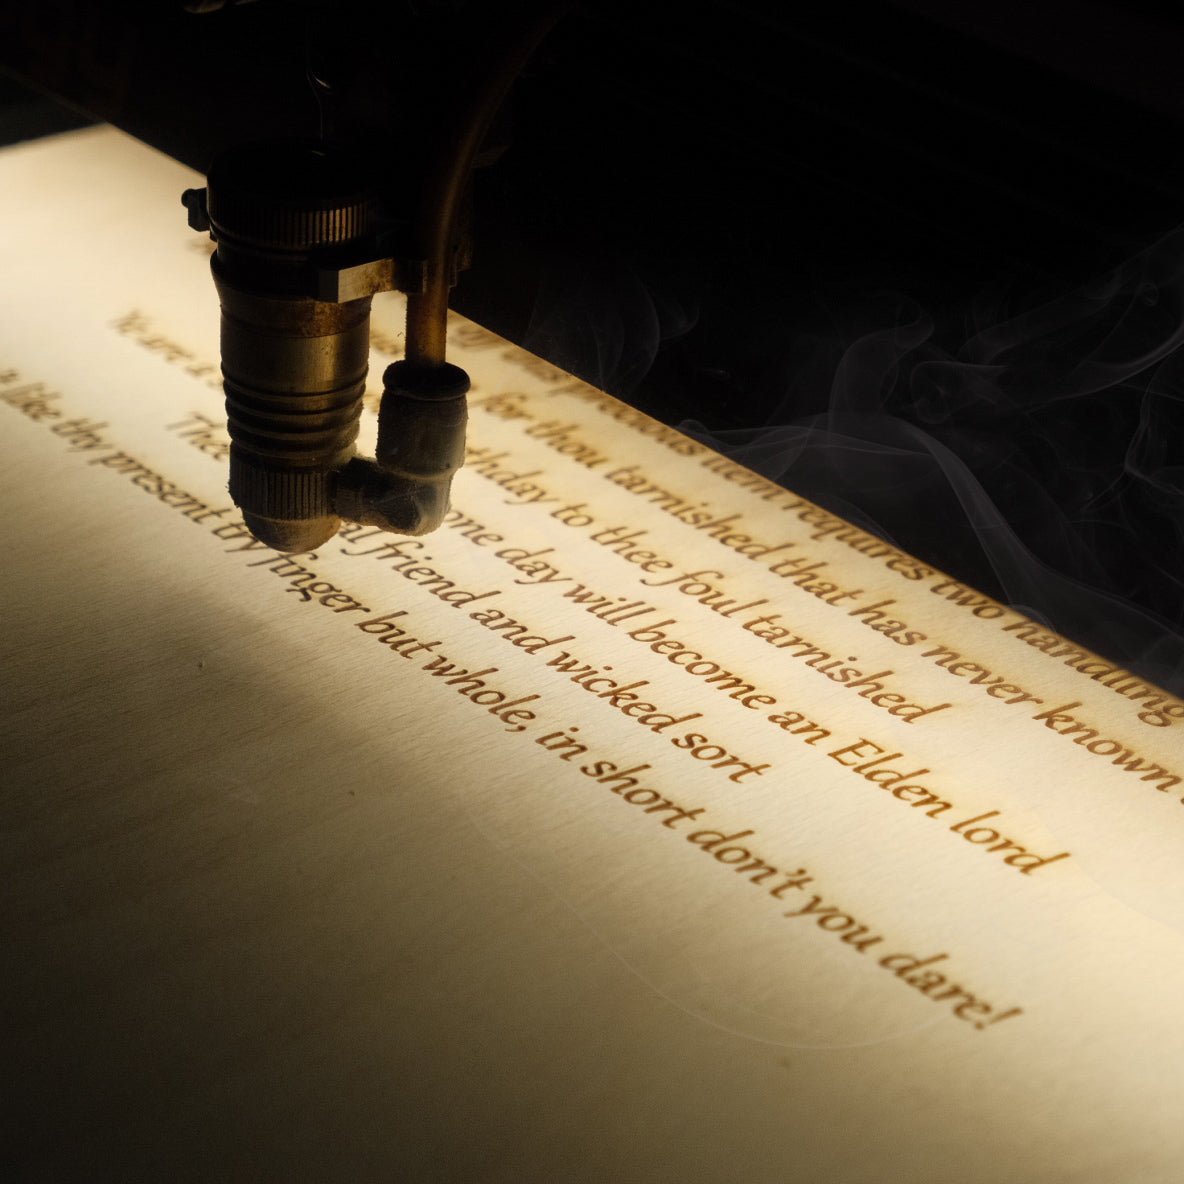 precious item requires two handling
for thou tarnished that has never known
to thee foul tarnished
Ye are a one day will become an Elden lord
friend and wicked sort
like thy present try finger but whole, in short don't you dare!